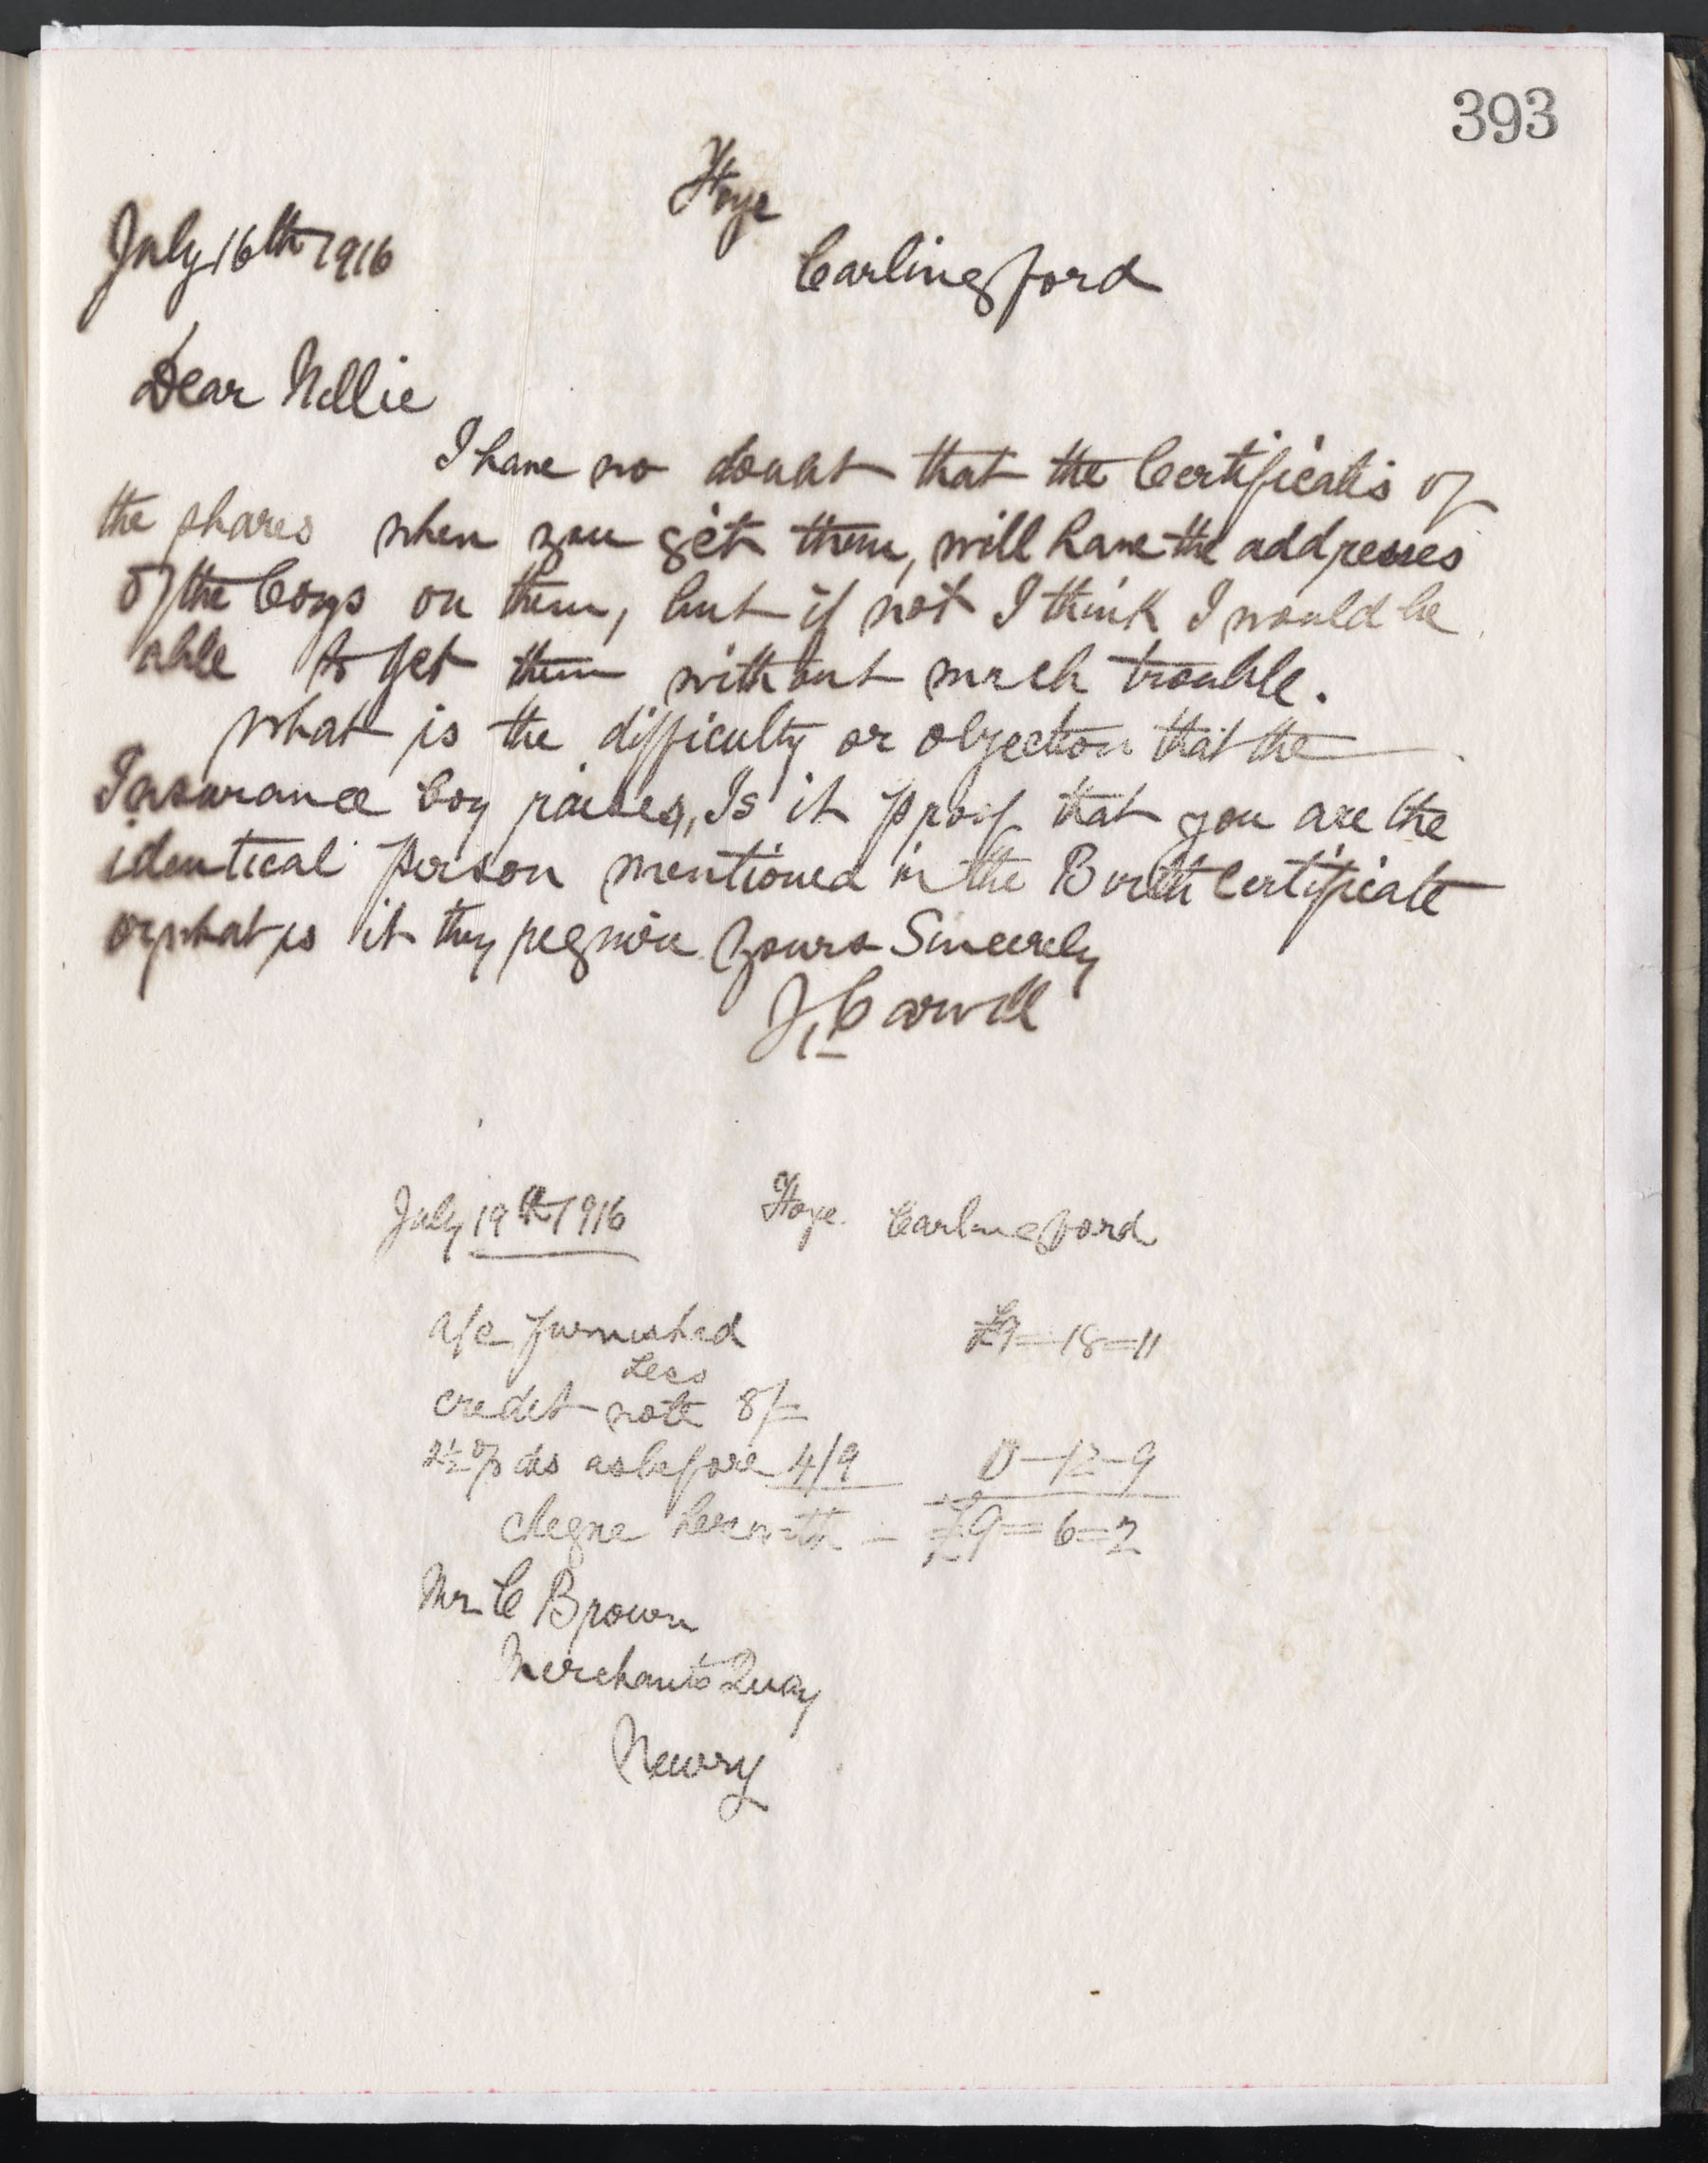 393
Ffoye
July 16th 1916
Carlingford
Dear Nellie
I have no doubt that the Certificates of
the shares when you get them, will have the addresses
of the Coys on them, but if not I think I would be
able to get them without much trouble.
What is the difficulty or objection that the
Insurance Coy raises, Is it proof that you are the
identical person mentioned in the Birth Certificate
or what is it they require Yours Sincerely
J, Carvill
July 19th 1916 Ffoye. Carlingford
a/c furnished £9=18=11
Less
credit note 8/=
2½ % dis as before 4/9 0-12-9
cheque herewith - £9=6=2
Mr C Brown
Merchants Quay
Newry